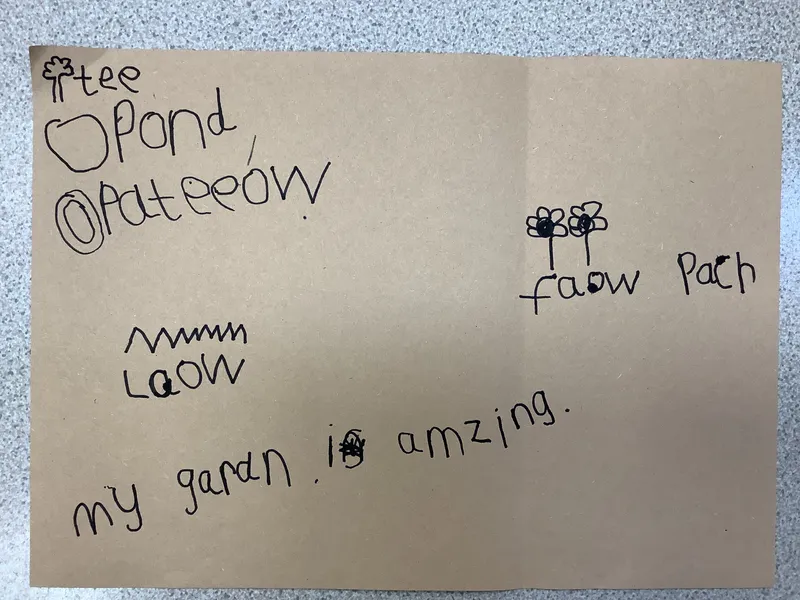 tee
Pond
Pateeow
faow Pach
Laow
my gardn is amzing.